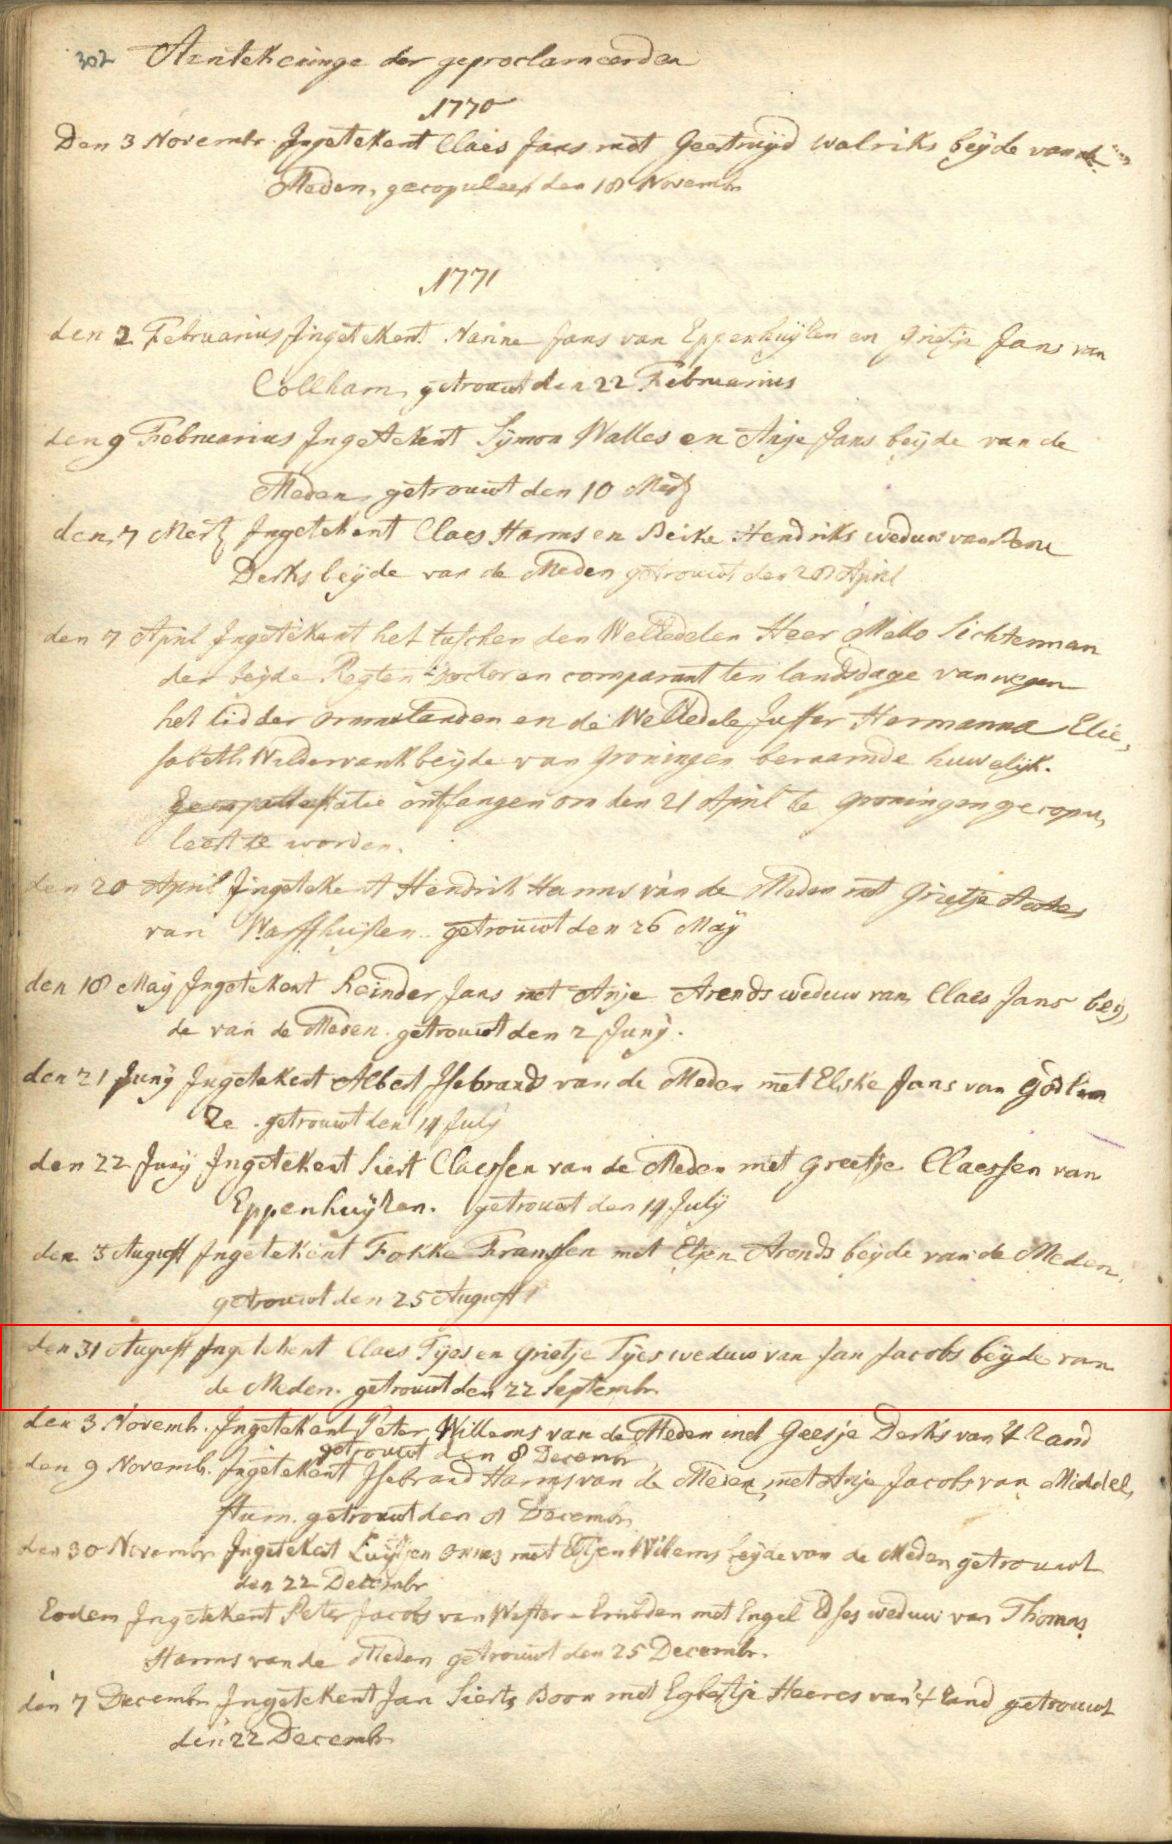 302 Aentekeninge der geproclameerden
1770
Den 3 Novembr. Ingetekent Claes Jans met Geertruyd Walriks beyde van de
Meden, gecopuleert den 18 Novembr
1771
den 2 Februarius Ingetekent Nanne Jans van Eppenhuysen en Grietje Jans van
Collham, getrouwt den 22 Februarius
den 9 Februarius Ingetekent Symon Walles en Anje Jans beyde van de
Meden, getrouwt den 10 Mert
den 7 Mert Ingetekent Claes Harms en Hendriks weduw van
Derks beyde van de Meden getrouwt den 28 April
den 7 April Ingetekent het tusschen den Welledelen Heer Mello Sichterman
der beyde Regten Doctor en comparant ten landsdage van wegen
het lid der ommelanden en de Welledele Juffer Hermanna Elie,
sabeth Wildervank beyde van Groningen beraamde huwelijk.
attestatie ontfangen om den 21 April te Groningen gecopu,
leert te worden.
den 20 April Ingetekent Hendrik Harms van de Meden met Grietje
van Warffhuysen. getrouwt den 26 May
den 18 May Ingetekent Reinder Jans met Anje Arends weduw van Claes Jans bey,
de van de Meden. getrouwt den 2 Juny.
den 21 Juny Ingetekent Albert Isebrands van de Meden met Elske Jans van Godlin
ze. getrouwt den 14 July
den 22 Juny Ingetekent Siert Claessen van de Meden met Greetje Claessen van
Eppenhuyzen. getrouwt den 14 July
den 3 August Ingetekent Fokke Franssen met Etjen Arends beyde van de Meden.
getrouwt den 25 August
den 31 August Ingetekent Claes Tyes en Grietje Tyes weduw van Jan Jacobs beyde van
de Meden. getrouwt den 22 Septembr.
den 3 Novemb. Ingetekent Peter Willems van de Meden met Geesje Derks van 't Zand
getrouwt den 8 Decembr
den 9 Novemb. Ingetekent Isebrand Harms van de Meden met Anje Jacobs van Middel,
stum. getrouwt den 8 Decembr
den 30 Novembr Ingetekent Luytjen Onnes met Etjen Willems beyde van de Meden getrouwt
den 22 Decembr
Eodem Ingetekent Peter Jacobs van Wester-Emden met Engel Edses weduw van Thomas
Harms van de Meden getrouwt den 25 Decembr.
den 7 Decembr Ingetekent Jan Sierts Boon met Egbertje Heeres van 't Zand getrouwt
den 22 Decembr